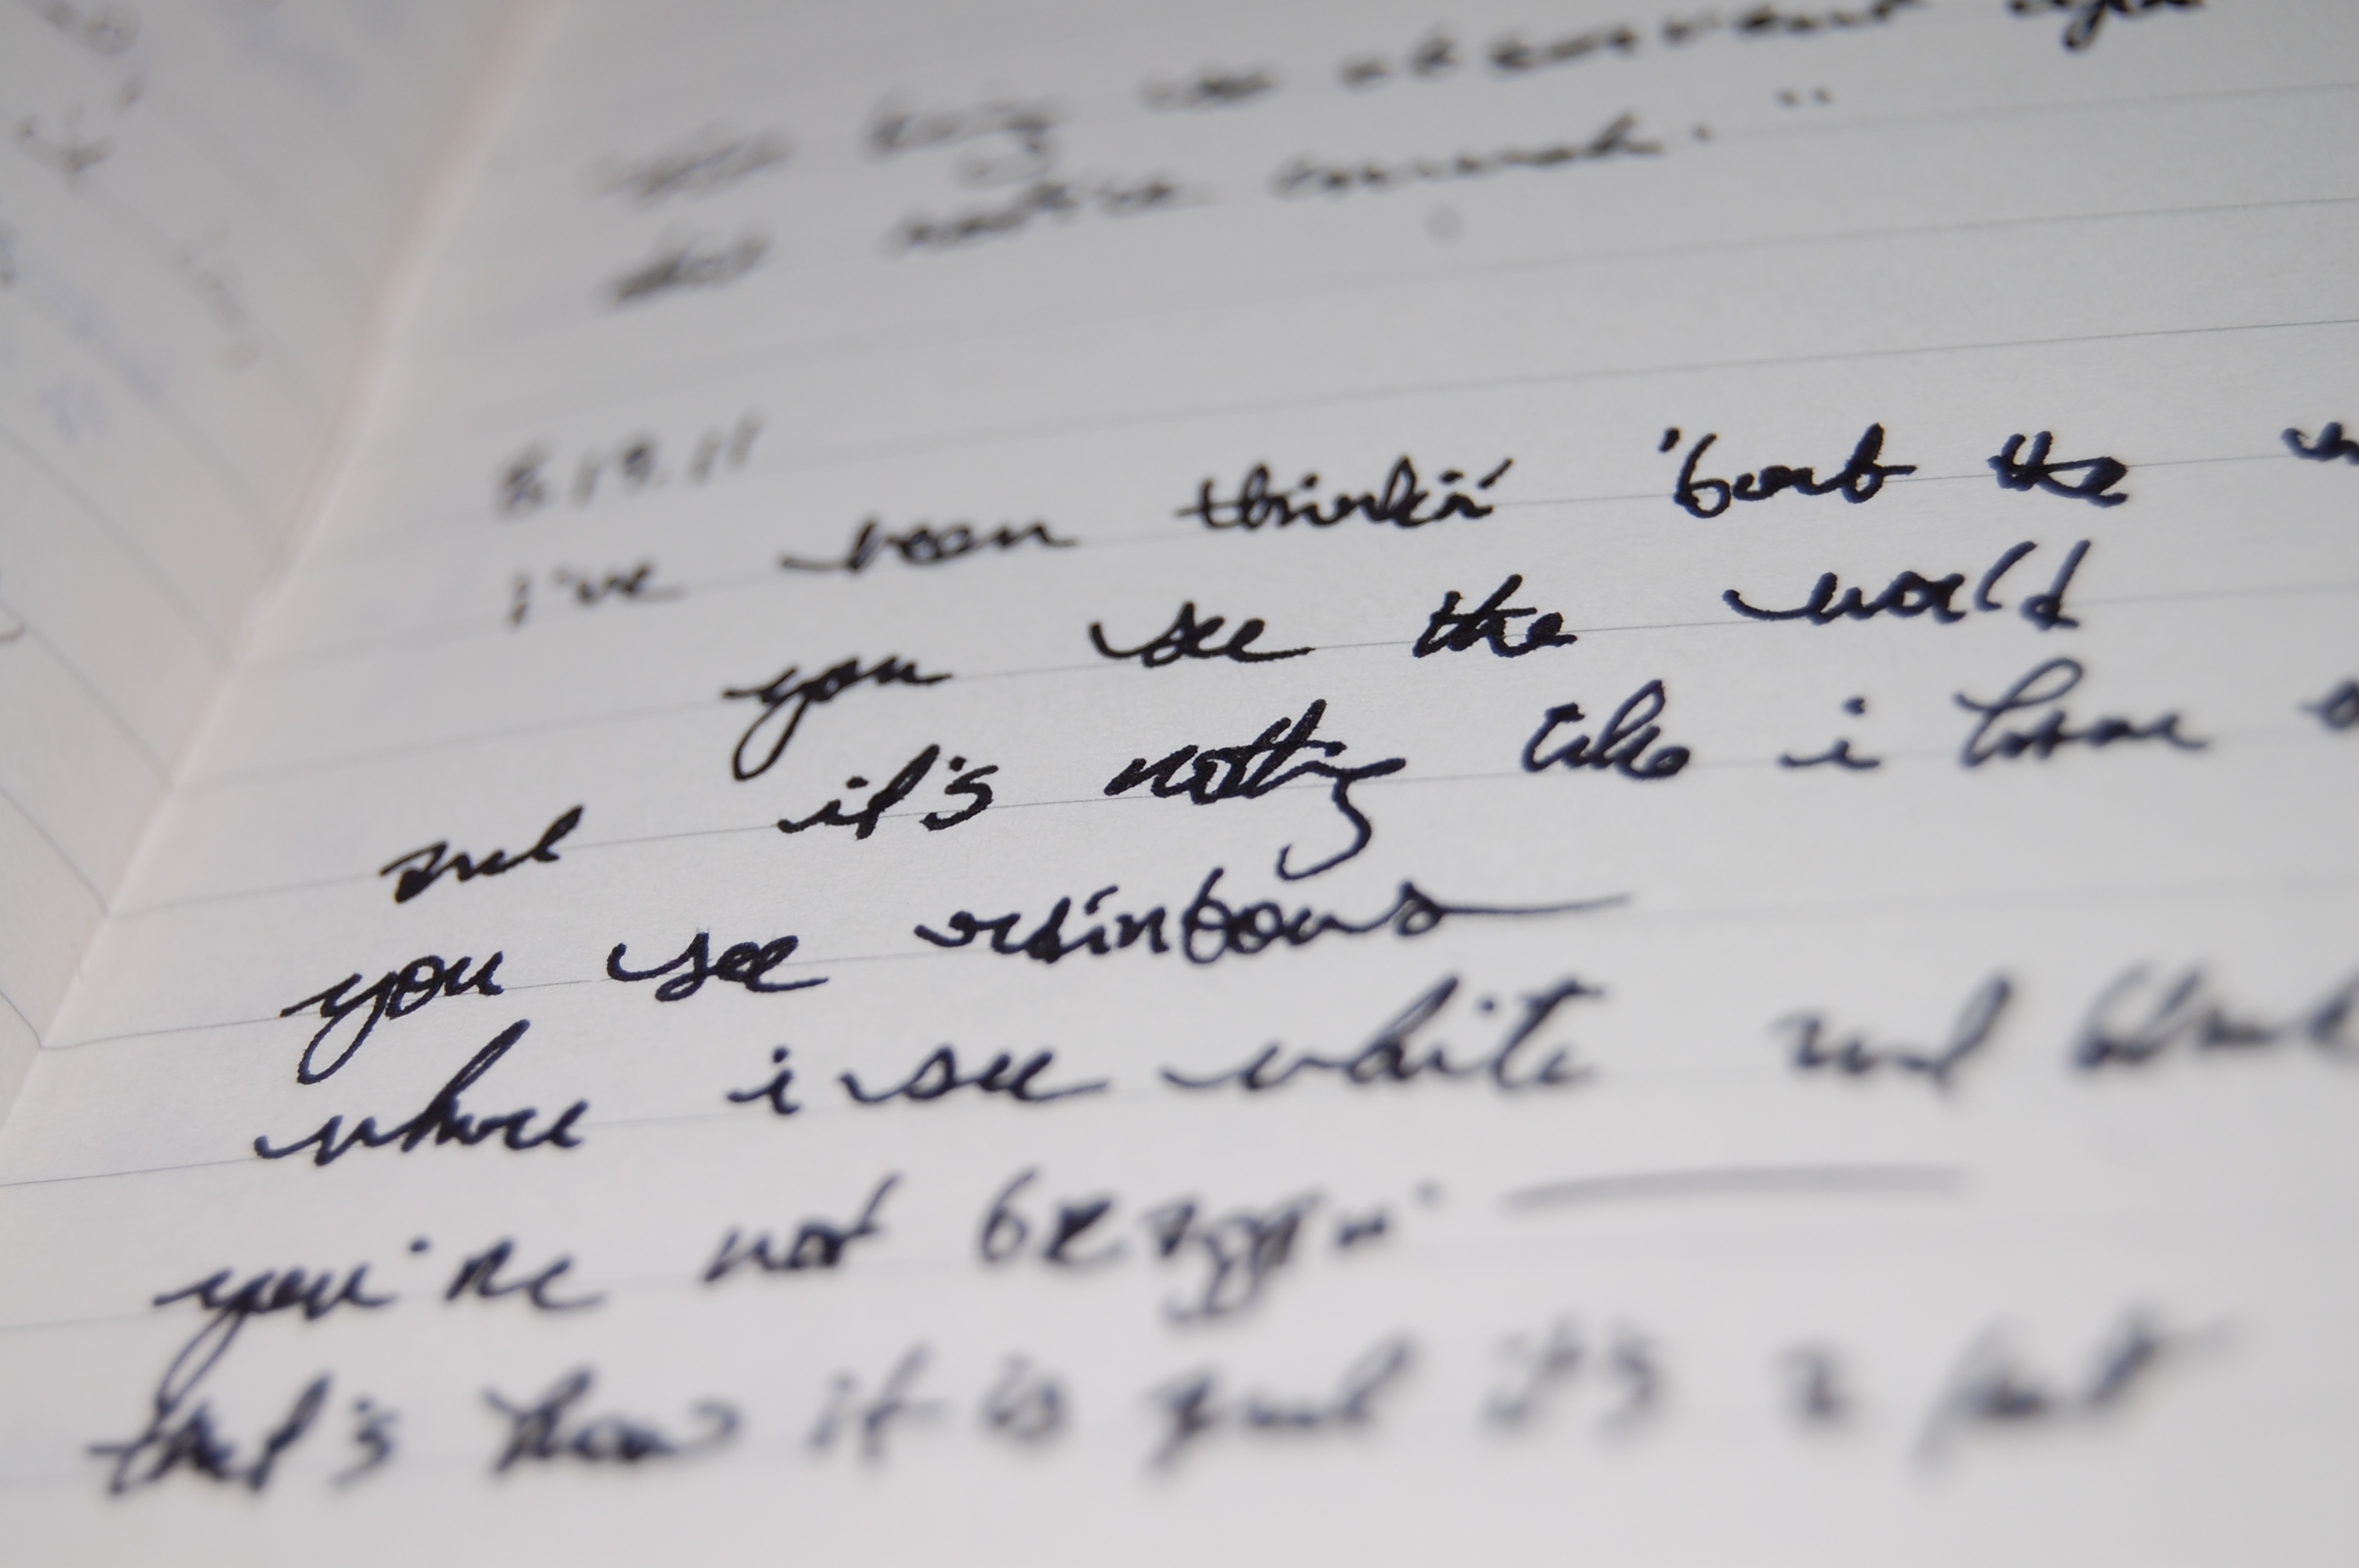 not notice much."
8.19.11
i've been thinkin' 'bout the
you see the world
and it's nothing like i have
you see rainbows
where i see white and black
you're not braggin'
that's how it is and it's a fact